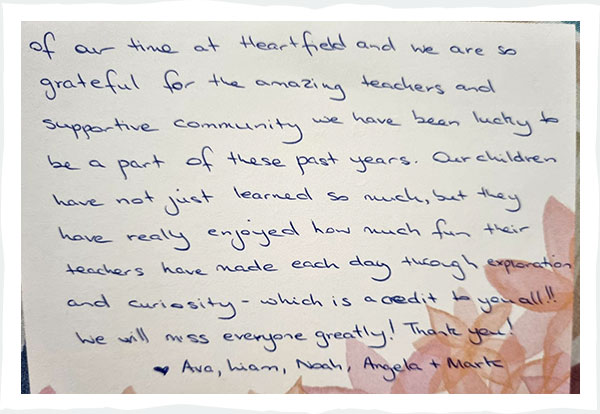 of our time at Heartfield and we are so
grateful for the amazing teachers and
supportive community we have been lucky to
be a part of these past years. Our children
have not just learned so much, but they
have really enjoyed how much fun their
teachers have made each day through exploration
and curiosity - which is a credit to you all!!
We will miss everyone greatly! Thank you!
♥ Ava, Liam, Noah, Angela + Mark